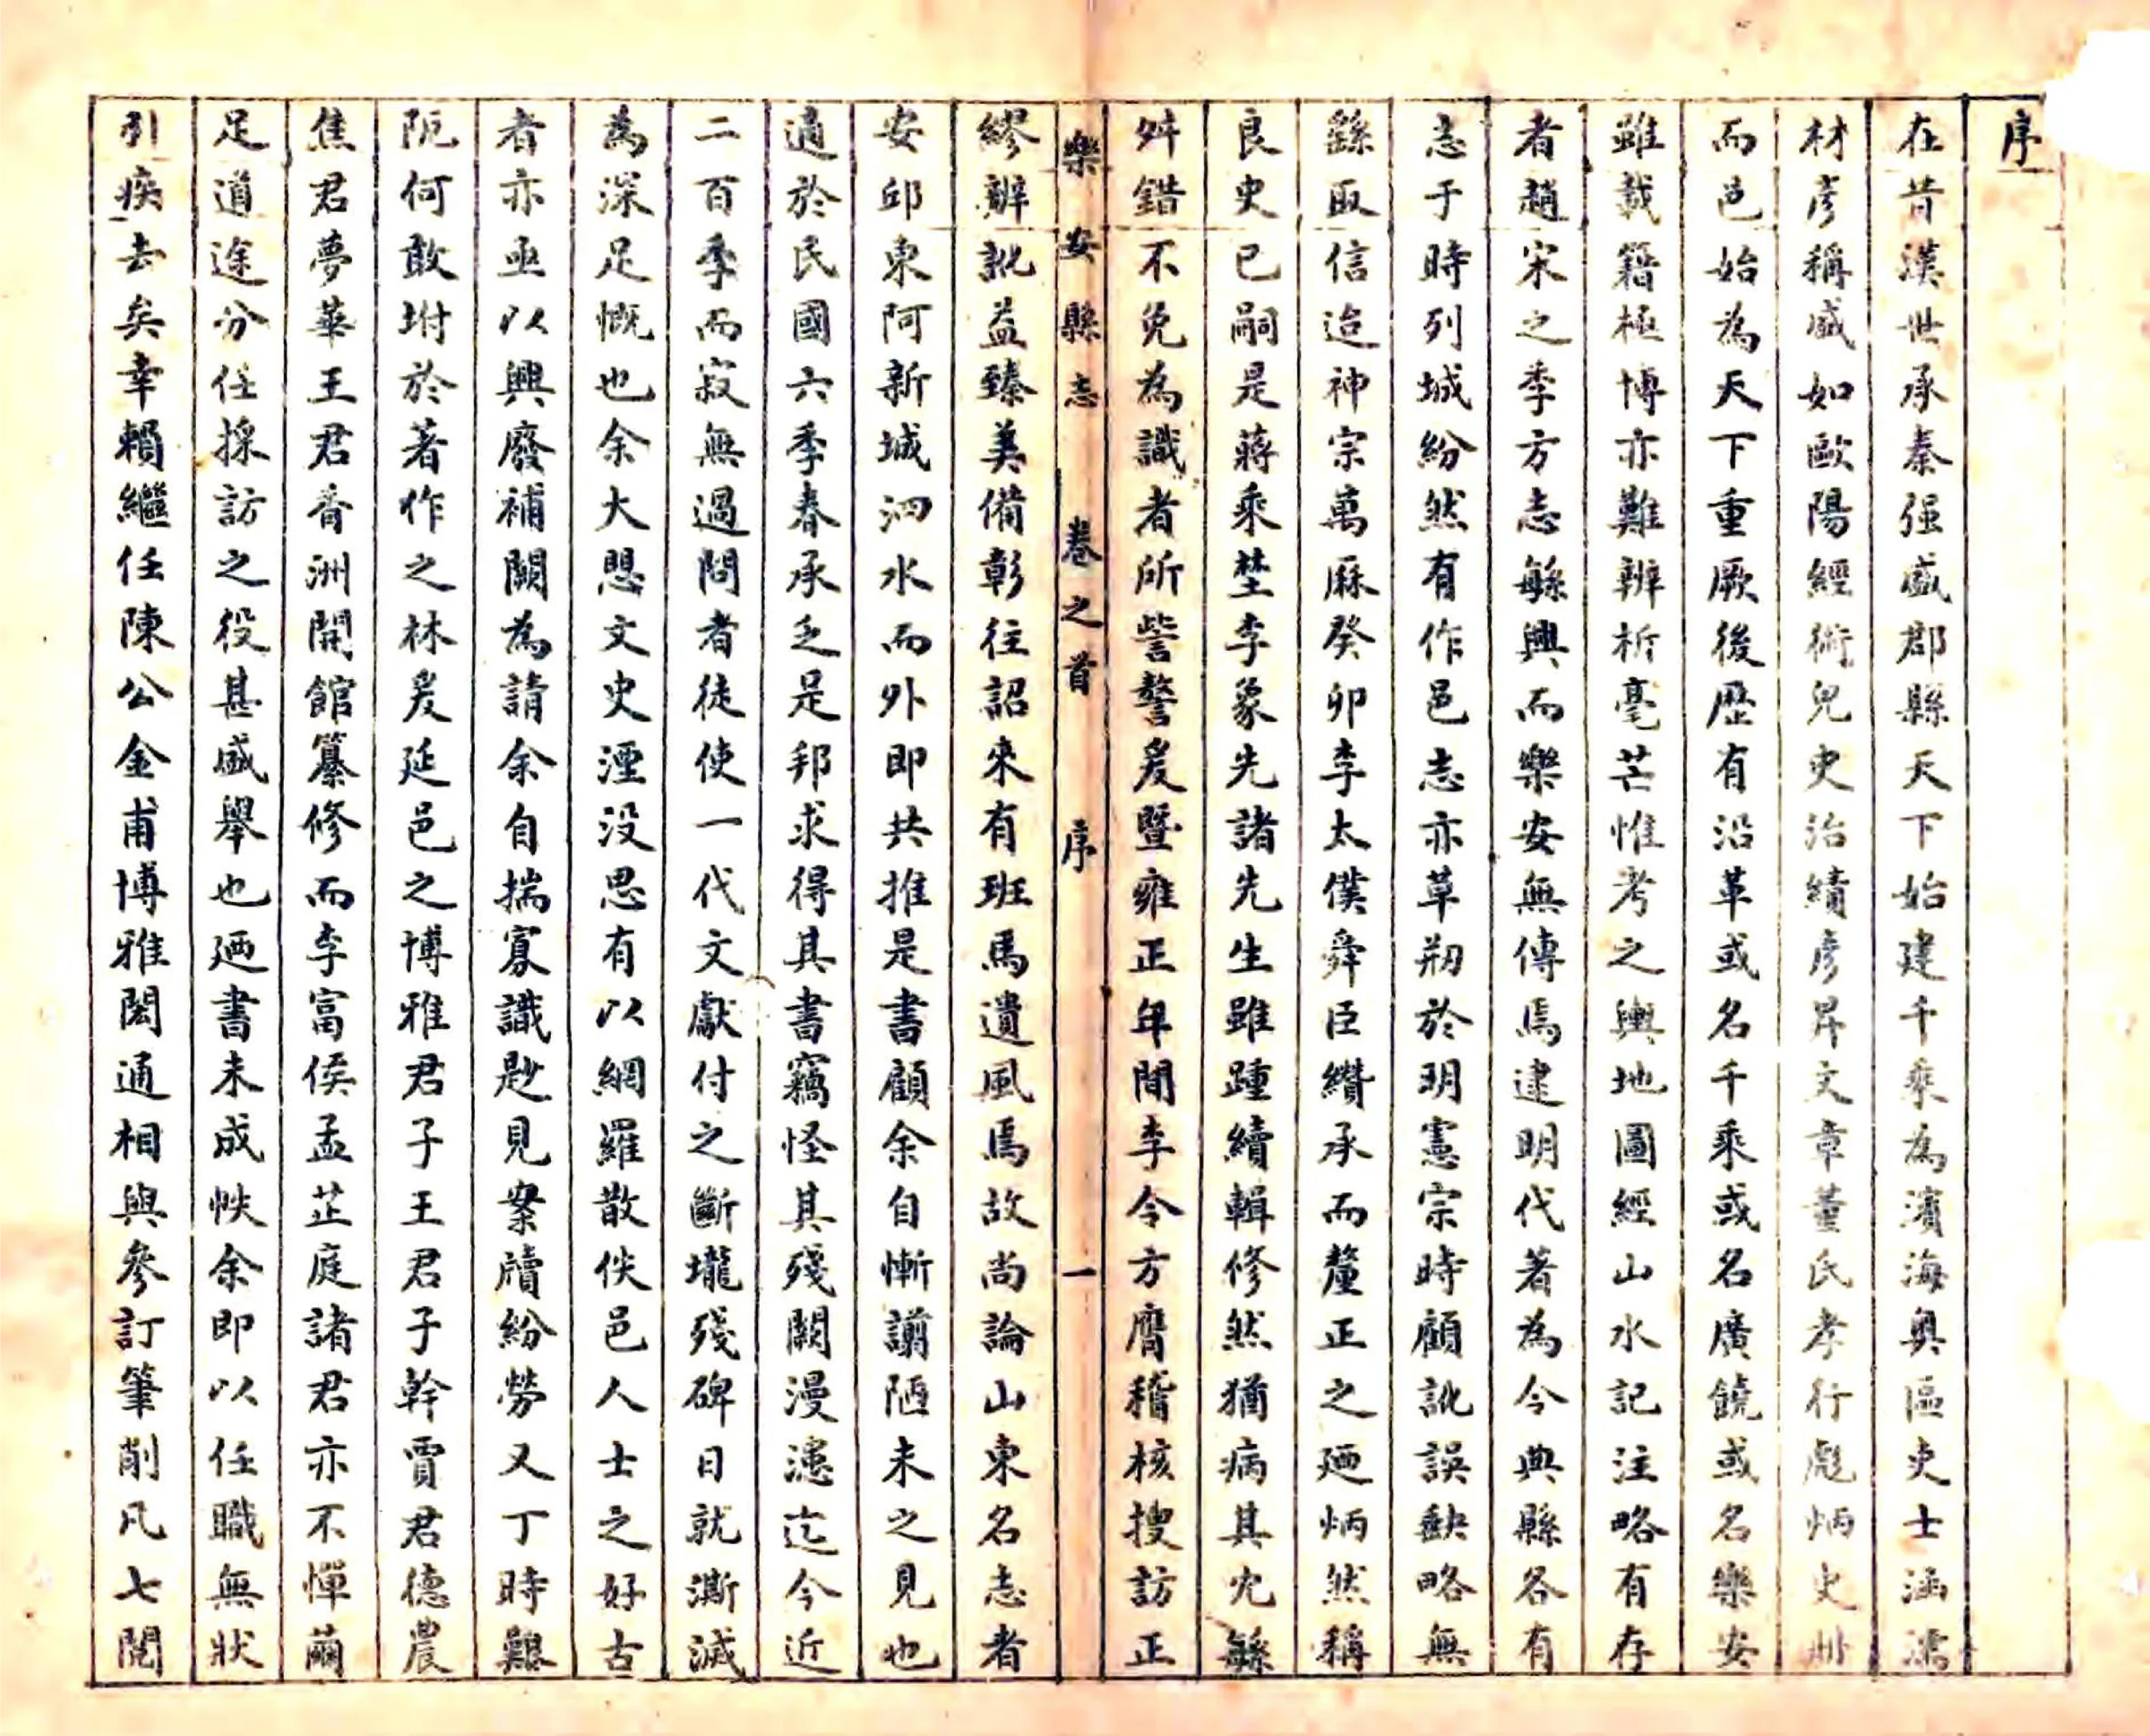 序
在昔漢世承秦强盛郡縣天下始建千乘為濱海奥區吏士涵濡
材彦稱盛如歐陽經術兒吏治績彦昇文章董氏孝行彪炳史冊
而邑始為天下重厥後歴有沿革或名千乘或名廣饒或名樂安
雖載籍極博亦難辨析毫芒惟考之輿地圖經山水記注略有存
者趙宋之季方志繇興而樂安無傳焉逮明代著為令典縣各有
志于時列城紛然有作邑志亦草刱於明憲宗時顧訛誤缺略無
繇取信迨神宗萬厤癸卯李太僕舜臣纘承而釐正之廼炳然稱
良史已嗣是蔣乘埜李象先諸先生雖踵續輯修然猶病其冗繇
舛錯不免為識者所訾謷爰暨雍正年間李令方膺稽核搜訪正
樂安縣志 卷之首 序 一
繆辨訛益臻美備彰往詔來有班馬遺風焉故尚論山東名志者
安邱東阿新城泗水而外即共推是書顧余自慚謭陋未之見也
適於民國六季春承乏是邦求得其書竊怪其殘闕漫漶迄今近
二百季而寂無過問者徒使一代文獻付之斷壠殘碑日就澌滅
為深足慨也余大思文史湮没思有以網羅散佚邑人士之好古
者亦亟以興廢補闕為請余自揣寡識尟見案牘紛勞又丁時艱
阨何敢坿於著作之林爰延邑之博雅君子王君子幹賈君德農
焦君夢華王君香洲開館纂修而李富侯孟芷庭諸君亦不憚繭
足道途分任採訪之役甚盛舉也廼書未成帙余即以任職無狀
引疾去矣幸賴繼任陳公金甫博雅閎通相與參訂筆削凡七閱